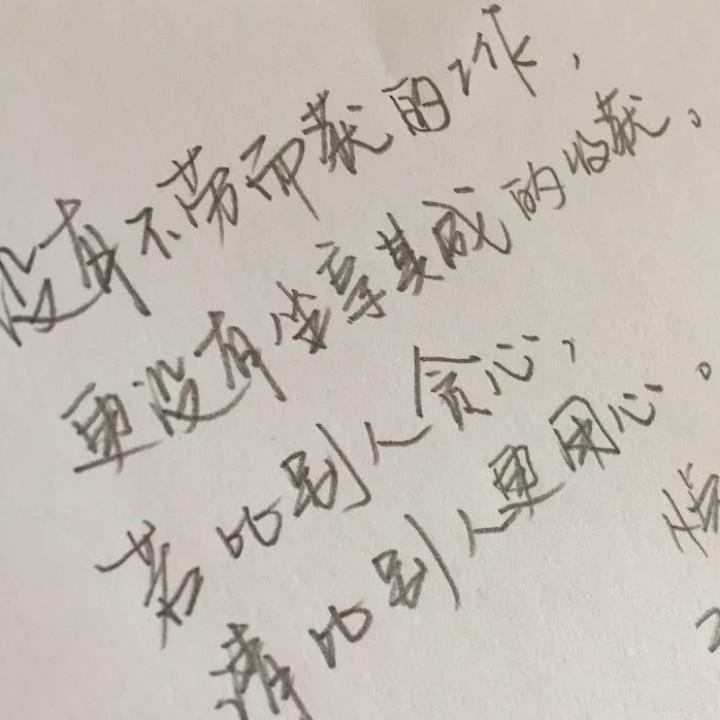 没有不劳而获的工作，
更没有坐享其成的收获。
若比别人贪心，
请比别人更用心。